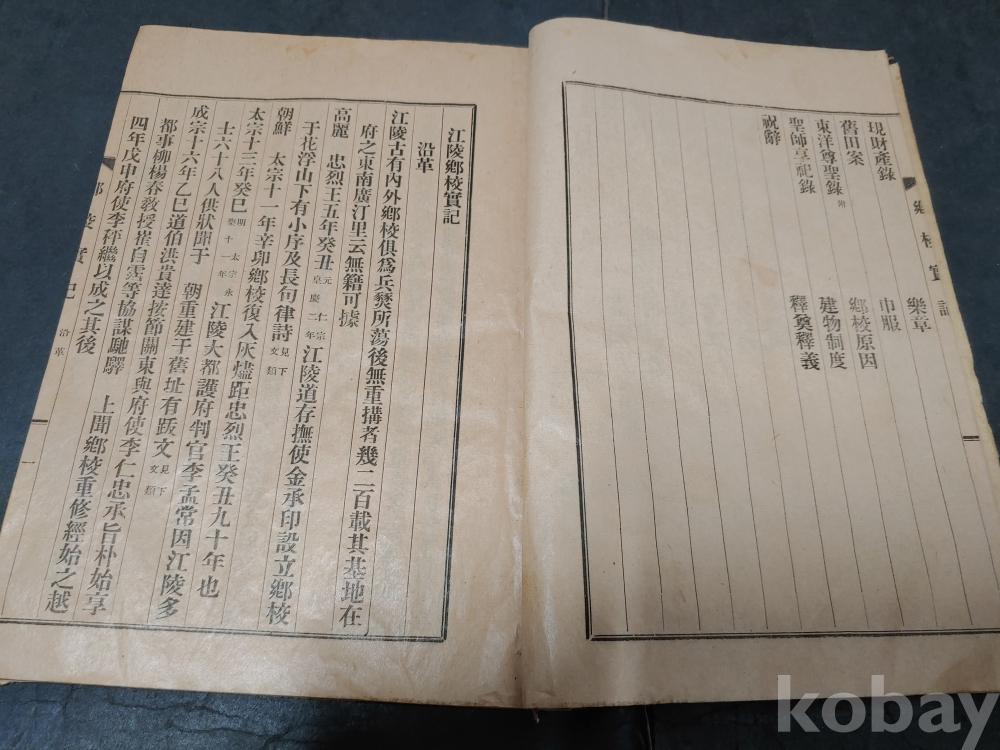 樂章
現財産錄 巾服
舊田案 鄕校原因
東洋尊聖錄附 建物制度
聖師享祀錄 釋奠釋義
祝辭
鄕校實記
江陵鄕校實記
沿革
江陵古有內外鄕校俱爲兵燹所蕩後無重搆者幾二百載其基地在
府之東南廣汀里云無籍可據
高麗 忠烈王五年癸丑元仁宗皇慶二年江陵道存撫使金承印設立鄕校
于花浮山下有小序及長句律詩見下文類
朝鮮 太宗十一年辛卯鄕校復入灰燼距忠烈王癸丑九十年也
太宗十三年癸巳明太宗永樂十一年江陵大都護府判官李孟常因江陵多
士六十八人供狀聞于 朝重建于舊址有跋文見下文類
成宗十六年乙巳道伯洪貴達按節關東與府使李仁忠承旨朴始享
都事柳楊春敎授崔自霑等協謀馳驛 上聞鄕校重修經始之越
四年戊申府使李秤繼以成之其後
鄕校實記 沿革 一
kobay